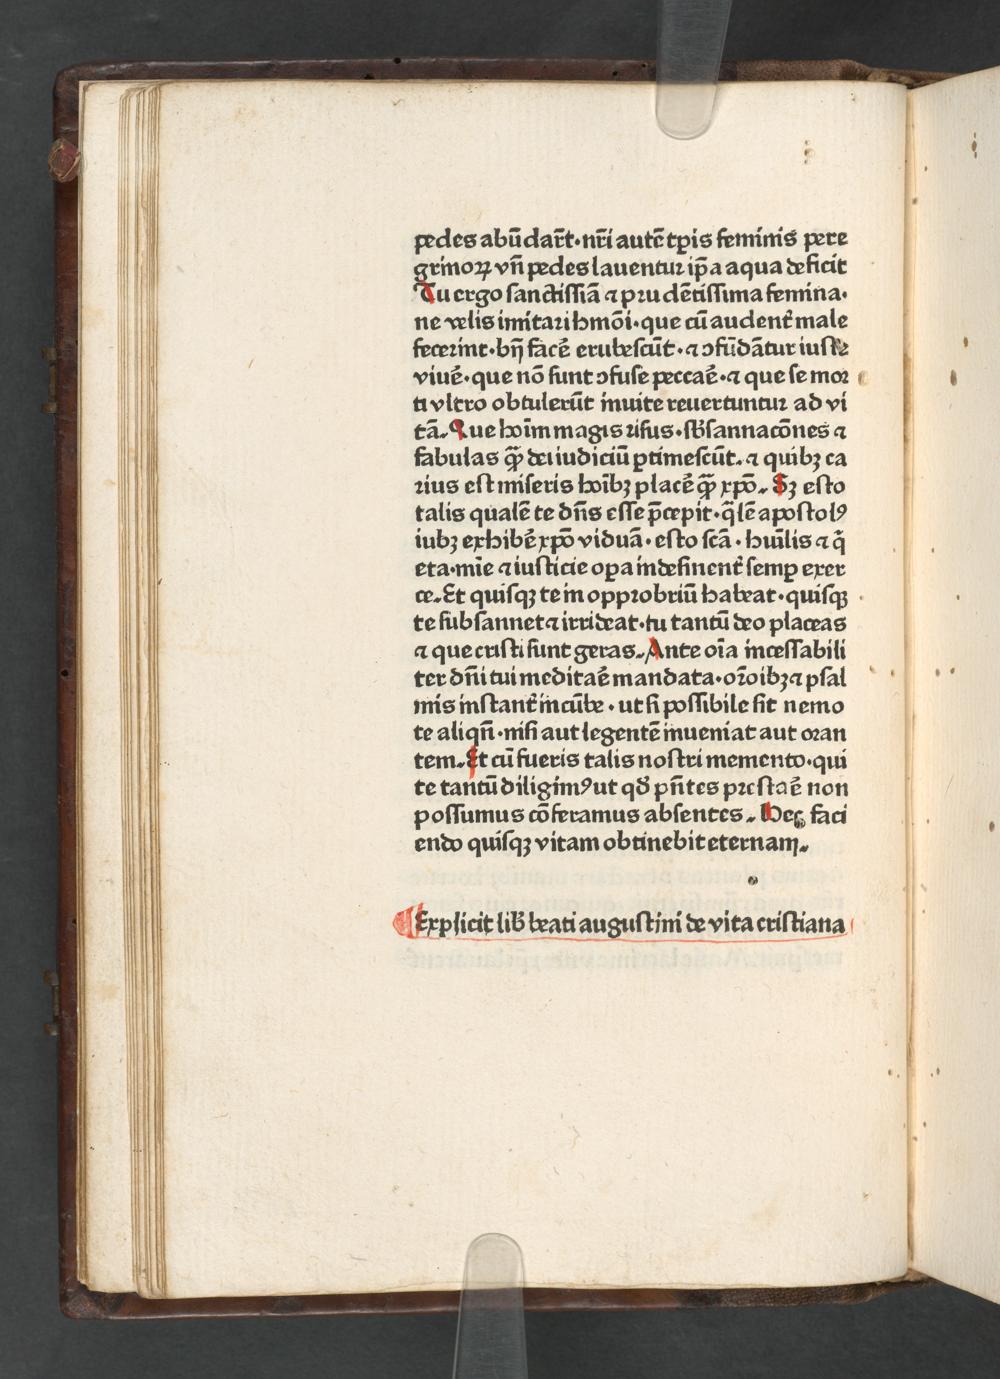 pedes abūdar̄t·nr̄i autē tꝑis feminis pere
grinoꝝ vn̄ pedes lauentur ip̄a aqua deficit
Tu ergo sanctissīa ⁊ prudētissima femina·
ne velis imitari hmōi·que cū audent̄ male
fecerint·bn̄ facē erubescūt·⁊ ↄfūdātur iuste
viuē·que nō sunt ↄfuse peccaē·⁊ que se mor
ti vltro obtulerūt inuite reuertuntur ad vi
tā. Que hoīm magis risus·sb̄sannacōnes ⁊
fabulas q̄ꝫ dei iudiciū ꝑtimescūt. ⁊ quibꝫ ca
rius est miseris hoībꝫ placē q̄ꝫ xp̄o. Sꝫ esto
talis qualē te dn̄s esse p̄cepit·q̄lē apostolꝰ
iubꝫ exhibē xp̄o viduā·esto scā·hūilis ⁊ q̄
eta·mīe ⁊ iusticie oꝑa indefinent̄ semꝑ exer
ce. Et quisqꝫ te in opprobriū habeat·quisqꝫ
te subsannet ⁊ irrideat·tu tantū deo placeas
⁊ que cristi sunt geras. Ante oīa incessabili
ter dn̄i tui meditaē mandata·or̄oibꝫ ⁊ psal
mis instant̄ incūbe·ut si possibile sit nemo
te aliqn̄·nisi aut legentē inueniat aut oran
tem. Et cū fueris talis nostri memento·qui
te tantū diligimꝰ ut qd̄ pn̄tes prestaē non
possumus cōferamus absentes. Hec faci
endo quisqꝫ vitam obtinebit eternam.
¶Explicit lib̄ beati augustini de vita cristiana